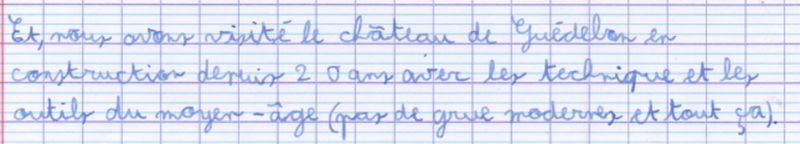 Et, nous avons visité le château de Guédelon en
construction depuis 20 ans avec les technique et les
outils du moyen-âge (pas de grue modernes et tout ça).